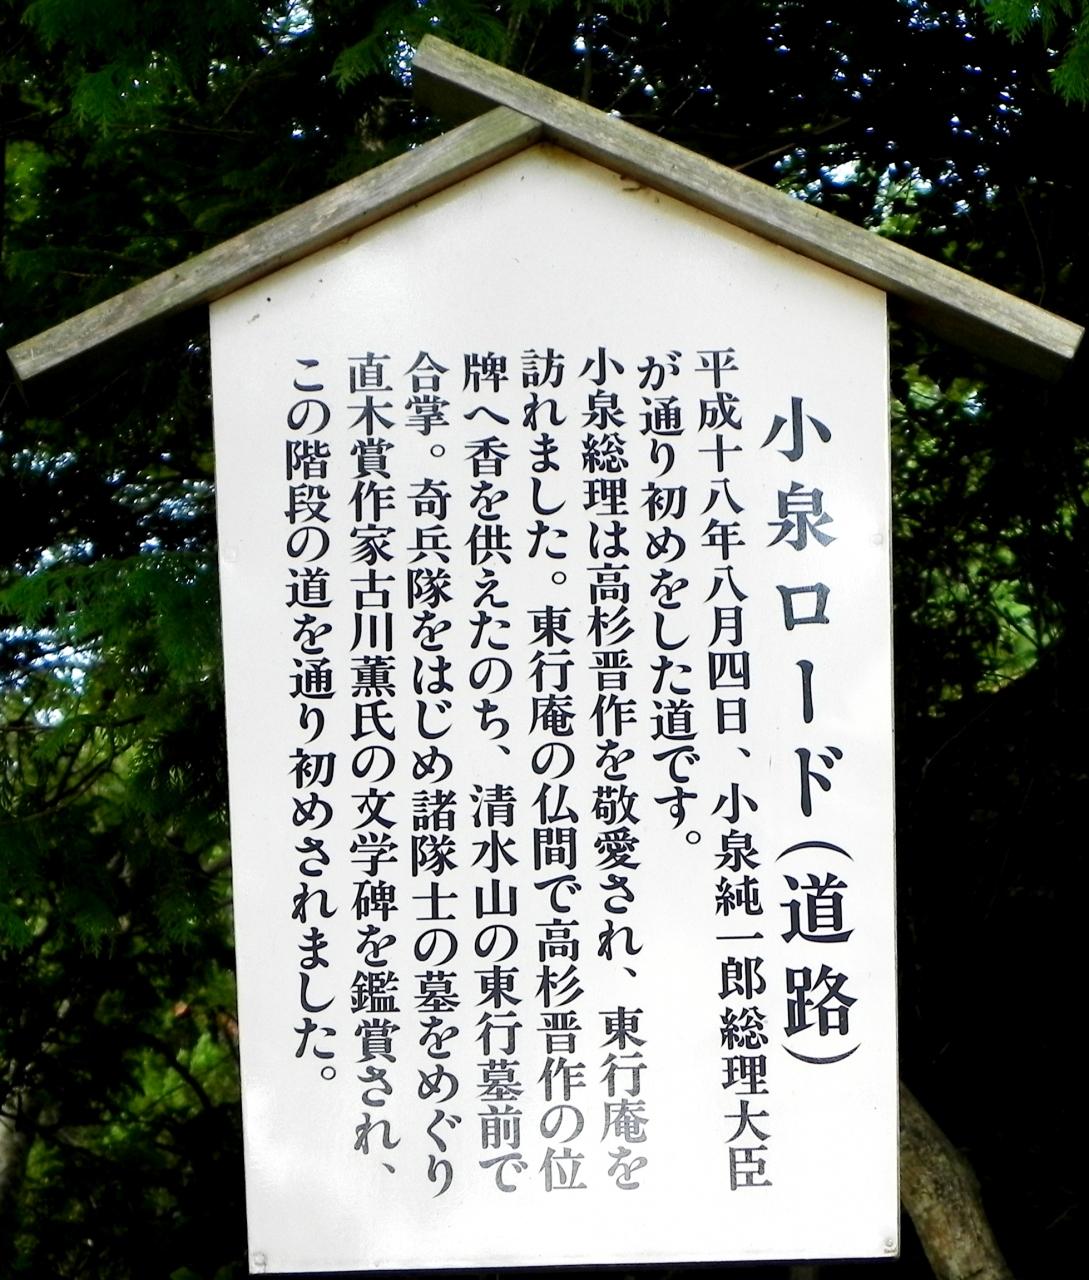 小泉ロード(道路)
平成十八年八月四日、小泉純一郎総理大臣
が通り初めをした道です。
小泉総理は高杉晋作を敬愛され、東行庵を
訪れました。東行庵の仏間で高杉晋作の位
牌へ香を供えたのち、清水山の東行墓前で
合掌。奇兵隊をはじめ諸隊士の墓をめぐり
直木賞作家古川薫氏の文学碑を鑑賞され、
この階段の道を通り初めされました。